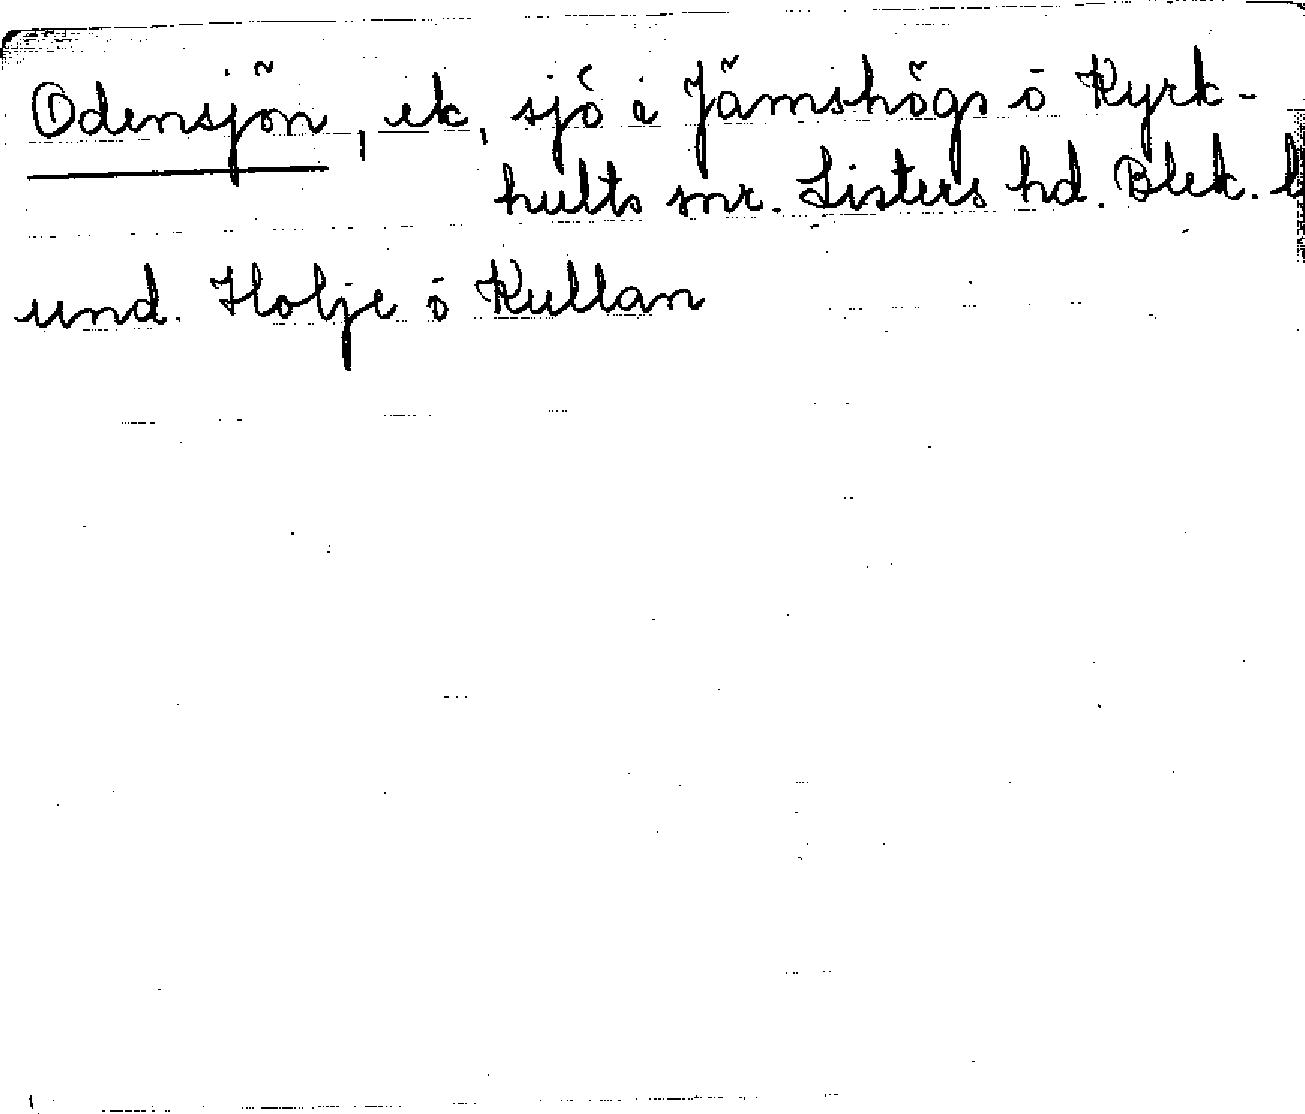 Odensjön, ek, sjö i Jämshögs o Kyrk-
hults snr. Listers hd. Blek. l
und. Holje o Kullan